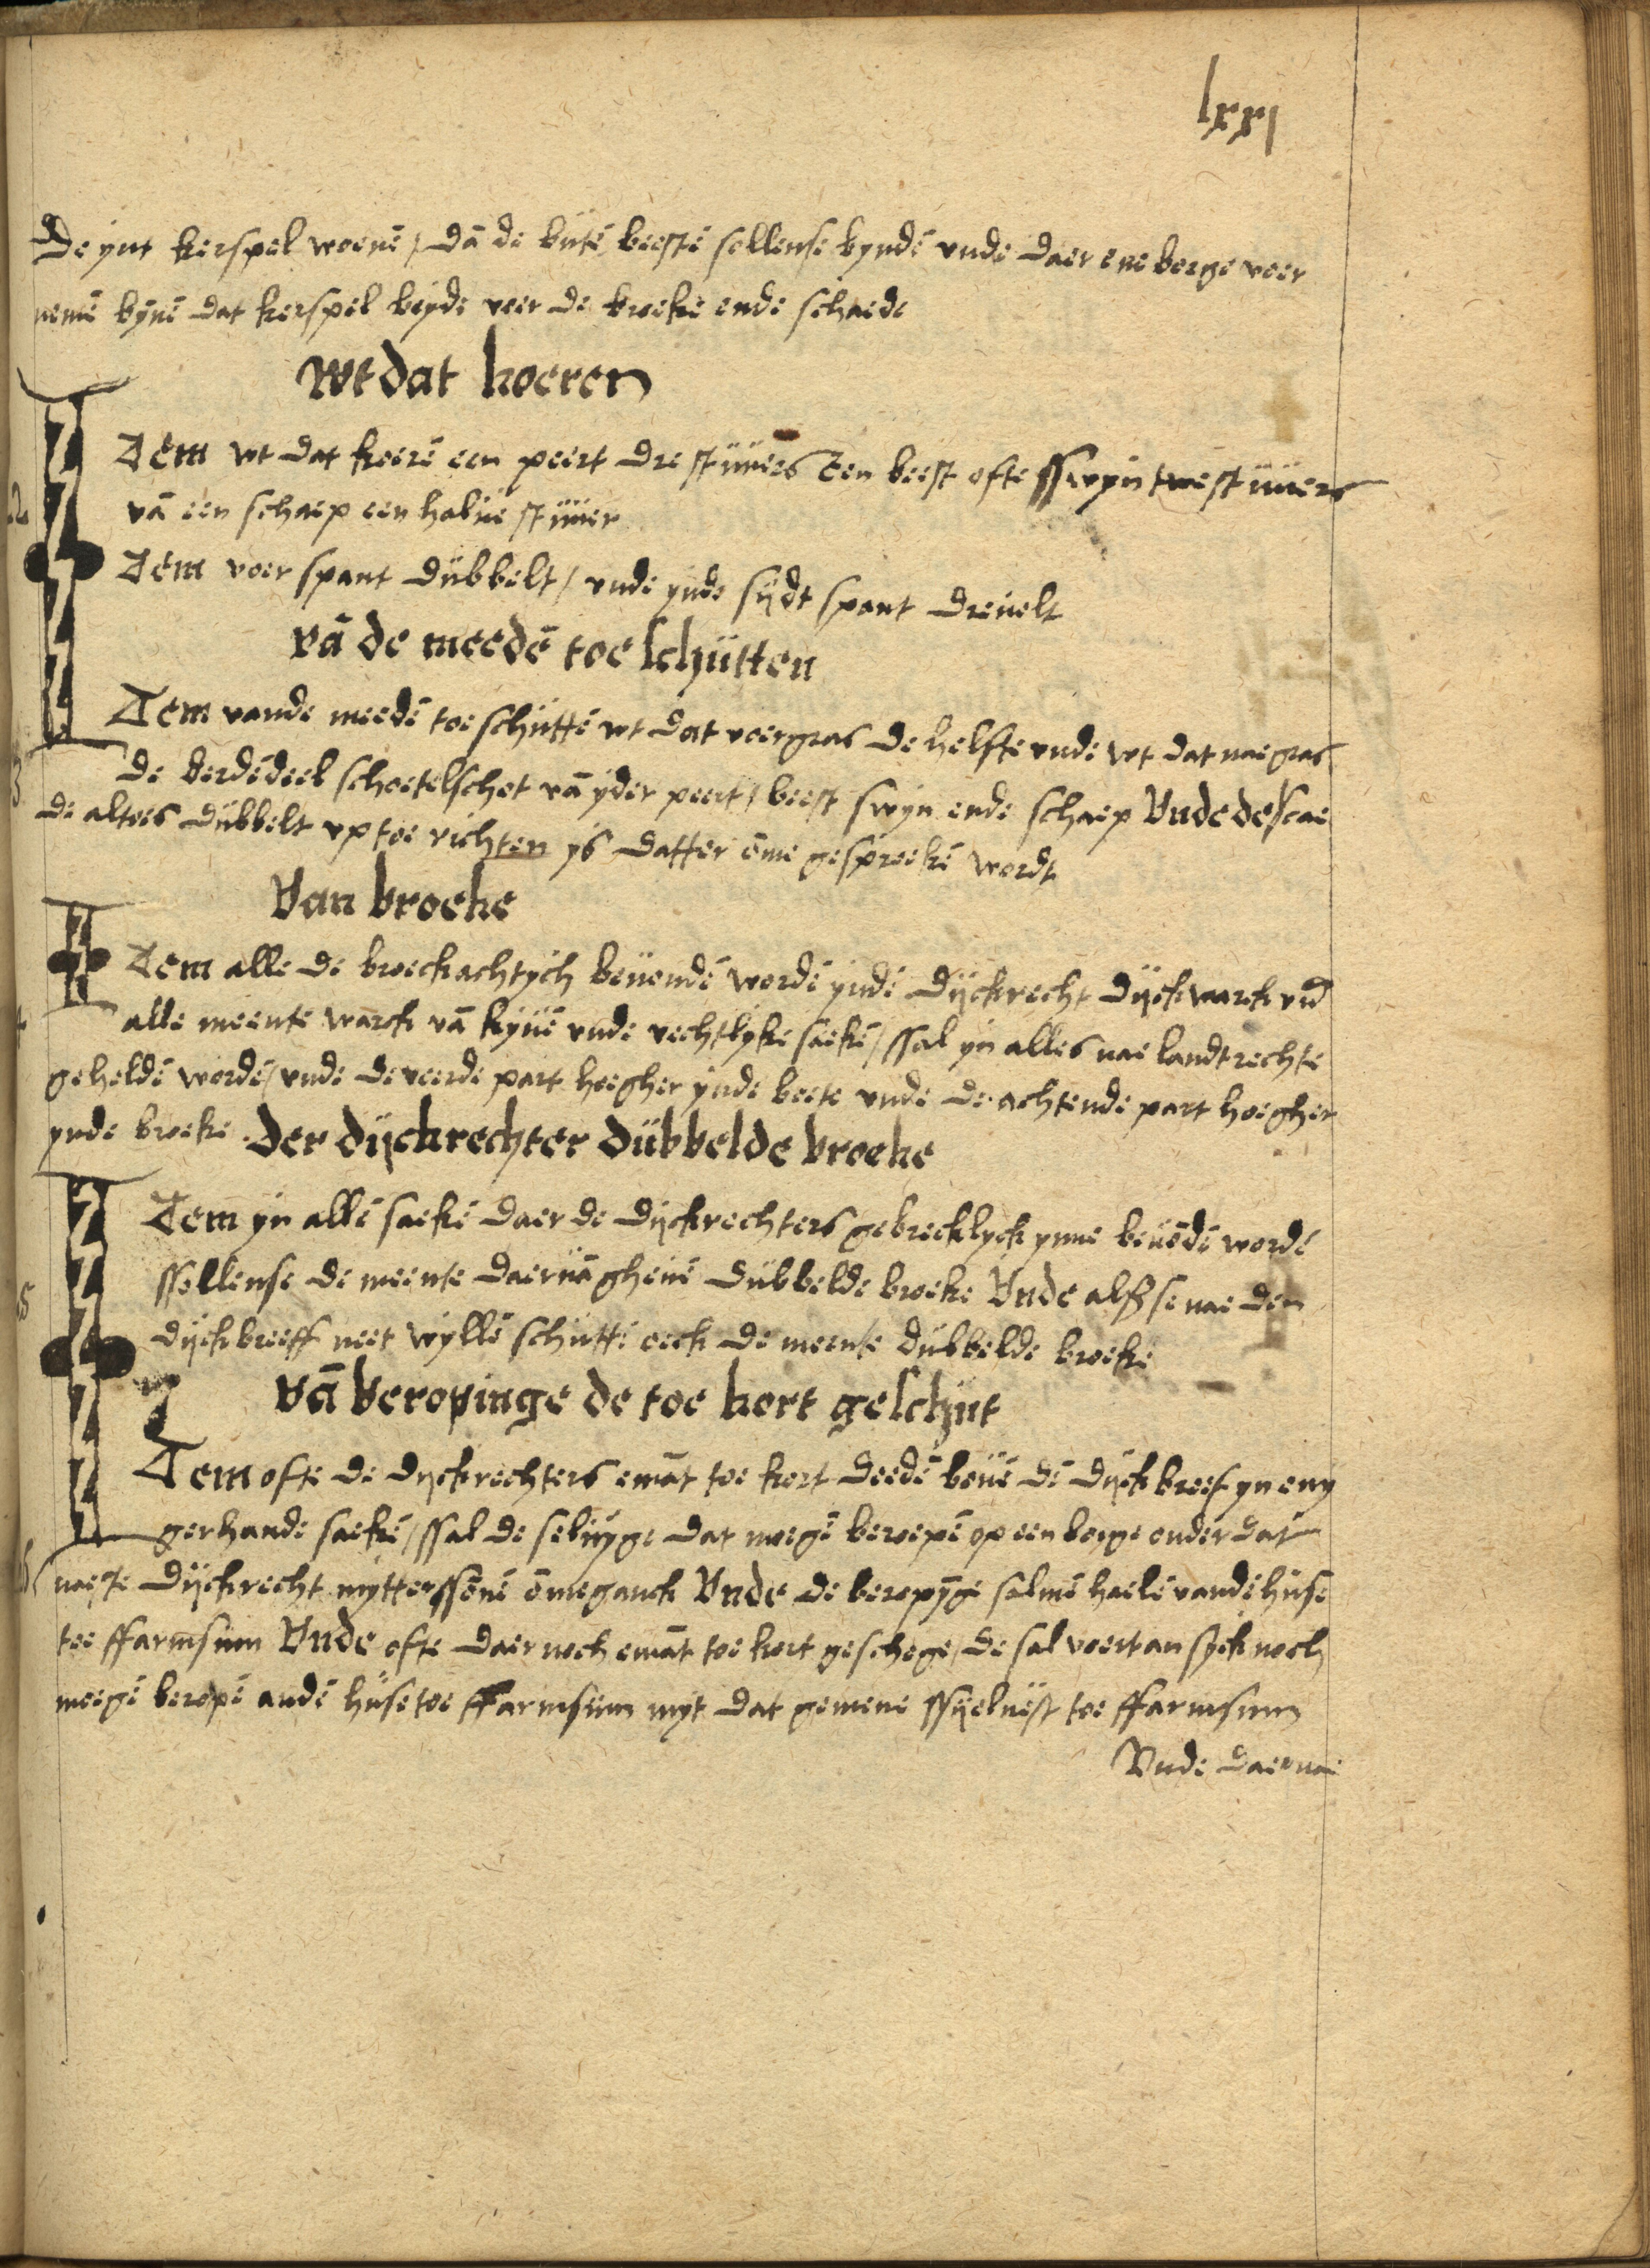 lxxj
De ynt kerspel woenē / dā de butē beestē sollense byndē vnde daer ene borge voer
nemē bynē dat kerspel beyde veer de broeke ende schaede
Wt dat koeren
Item wt dat koerē een peert dre stuuers Een beest ofte sswyn twe stuuers
vā een schaep een halue stuuer
Item voer spant dubbelt / vnde ynde sydt spant dreuelt
vā de meedē toe schutten
Item vande meedē toe schuttē wt dat voergras de helfte vnde wt dat naegras
de derdēdeel schoetelschot vā yder peert / beest swyn ende schaep Vnde de scae
de altoes dubbelt vp toe richten ys datter ōme gesproekē wordt
Van broeke
Item alle de broeckachtych beuondē wordē ynde dyckrecht dyckwarck vnd
alle meente warck vā kyuē vnde vechtlyke saekē / ssal yn alles nae landtrechte
geholdē wordē / vnde de veerde part hoegher ynde boete vnde de achtende part hoegher
ynde broeke . Der dyckrechter dubbelde broeke
Item yn allē saekē daer de dyckrechters gebrecklyck ynne beuōdē wordē
ssollense de meente daer vā gheuē dubbelde broeke Vnde alsse nae den
dyckbreeff neet wyllē schuttē oeck de meente dubbelde broeke
vā beropinge de toe kort geschut
Item ofte de dyckrechters emāt toe kort deedē bouē dē dyckbreef yn eny
gerhande saekē / ssal de seluyge dat moegē beroepē op een borge onder dat
naeste dyckrecht mytterssōnē ōmeganck Vnde de beropȳge salmē haelē vandē huse
toe ffarmsum Vnde ofte daer noch emāt toe kort geschege / de sal voert an syck noch
moegē beropē andē huse toe ffarmsum myt dat gemene ssyeluest toe ffarmsum
Vnde daer nae